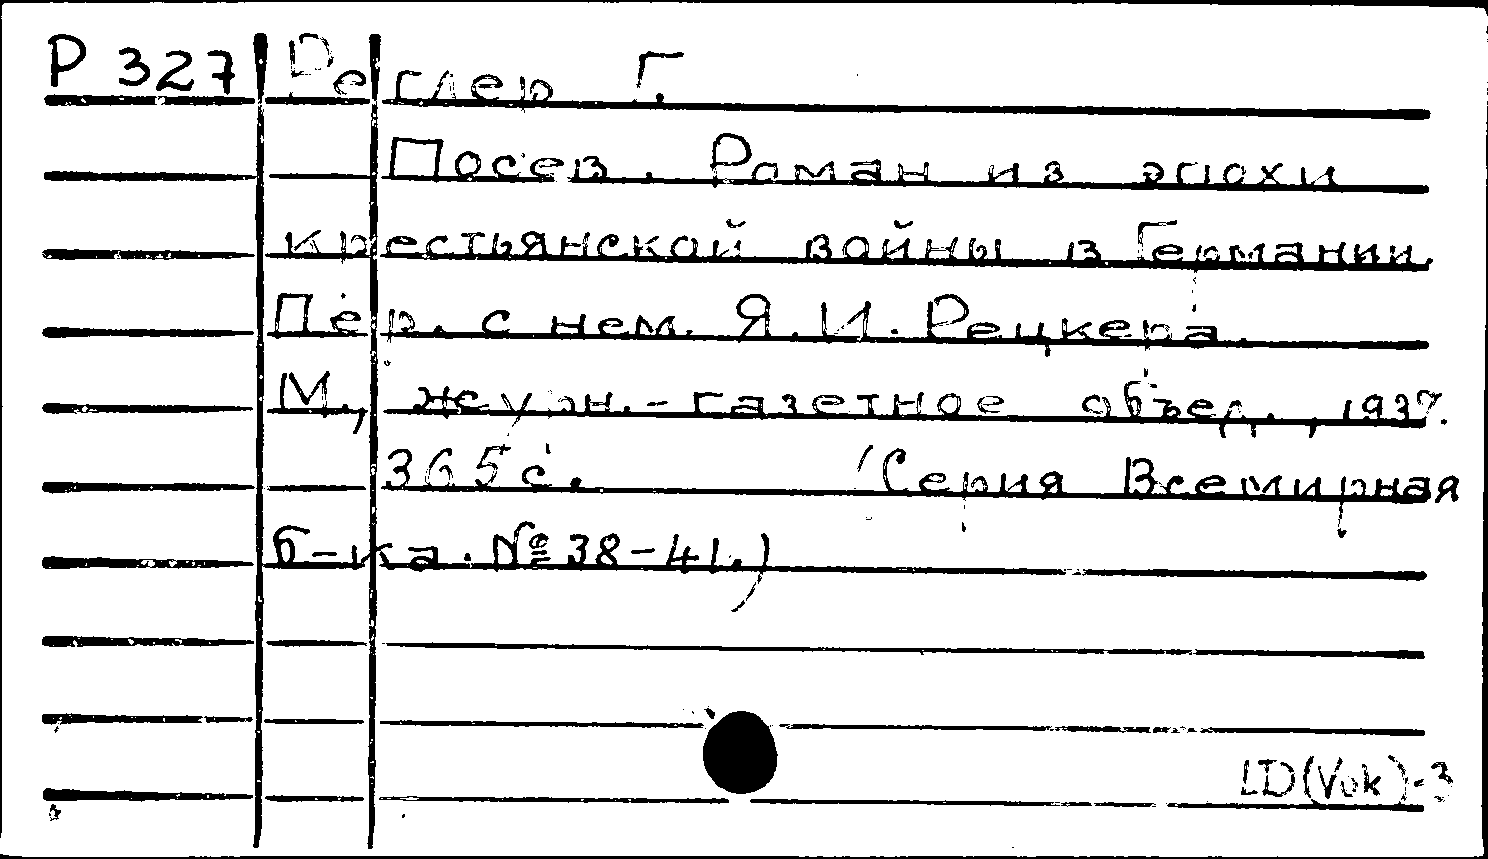 Р 327 Реглер Г.
Посев. Роман из эпохи
крестьянской войны в Германии.
Пер. с нем. Я. И. Рецкера.
М., журн.-газетное объед., 1937.
365 с. (Серия Всемирная
б-ка. № 38-41.)
LD(Vok)-3